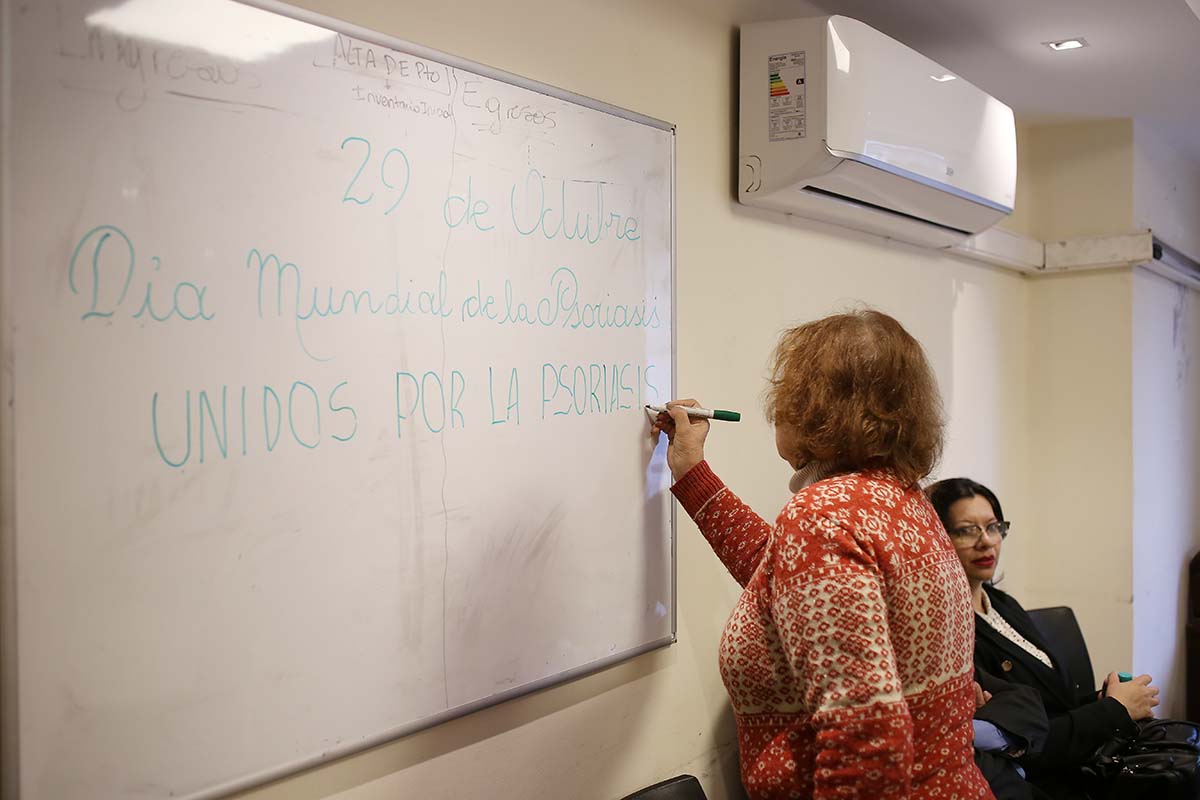 Ingresos
ALTA DE Pto
Inventario Inicial
Egresos
29 de Octubre
Día Mundial de la Psoriasis
UNIDOS POR LA PSORIASIS
Energía
A